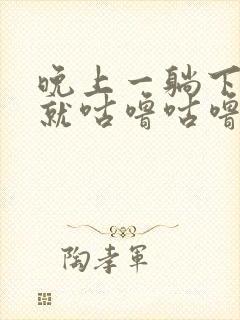 晚上一躺下
就咕噜咕噜
陶孝军